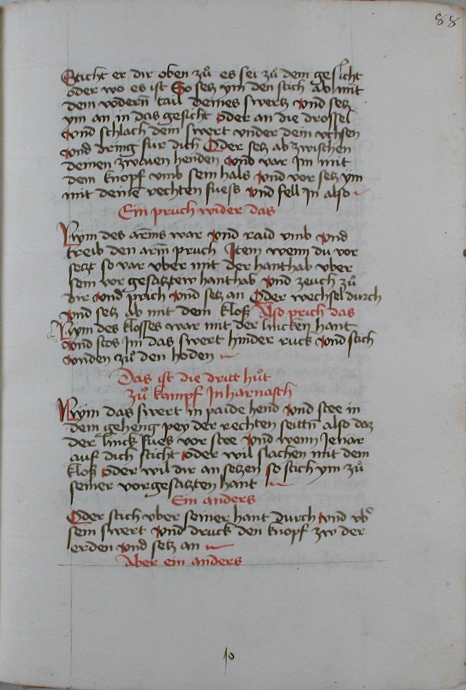 88
Sticht er dir oben zů es sei zů dem gesicht
oder wo es ist So setz ym den stich ab mit
dem vodern tail deines swertz vnd setz
ym an in das gesicht oder an die drossel
vnd schlach dein swert vnder dein vchsen
vnd dring für dich Oder setz ab zwischen
deinen zwaien henden vnd var im mit
dem knopf vmb sein hals vnd vor setz ym
mit deine rechten fuess vnd fell in also
Ein pruch wider das
Nym des arms war vnd raid vmb vnd
treib den arm pruch Item wenn du vor
setzt so var vber mit der hanthab vber
sein vor gesatzten hanthab vnd zeuch zů
dir vnd prich vnd setz an Oder wechsel durch
vnd setz ab mit dem kloß Also prich das
Nym des klosses war mit der lincken hant
vnd stos im das swert hinder ruck vnd stich
vnden zů den hoden
Das ist die dritt hůt
zů kampf In harnasch
Nym das swert in paide hend vnd stee in
dem geheng pey der rechten seittn also daz
der linck fues vor stee vnd wenn Jener
auf dich sticht oder wil slachen mit dem
kloß oder wil dir an setzen so stich ym zů
seiner vorgesatzten hant
Ein anders
Oder stich vber seiner hant durch vnd vbˢ
sein swert vnd druck den knopf zw der
erden vnd setz an
Aber ein anders